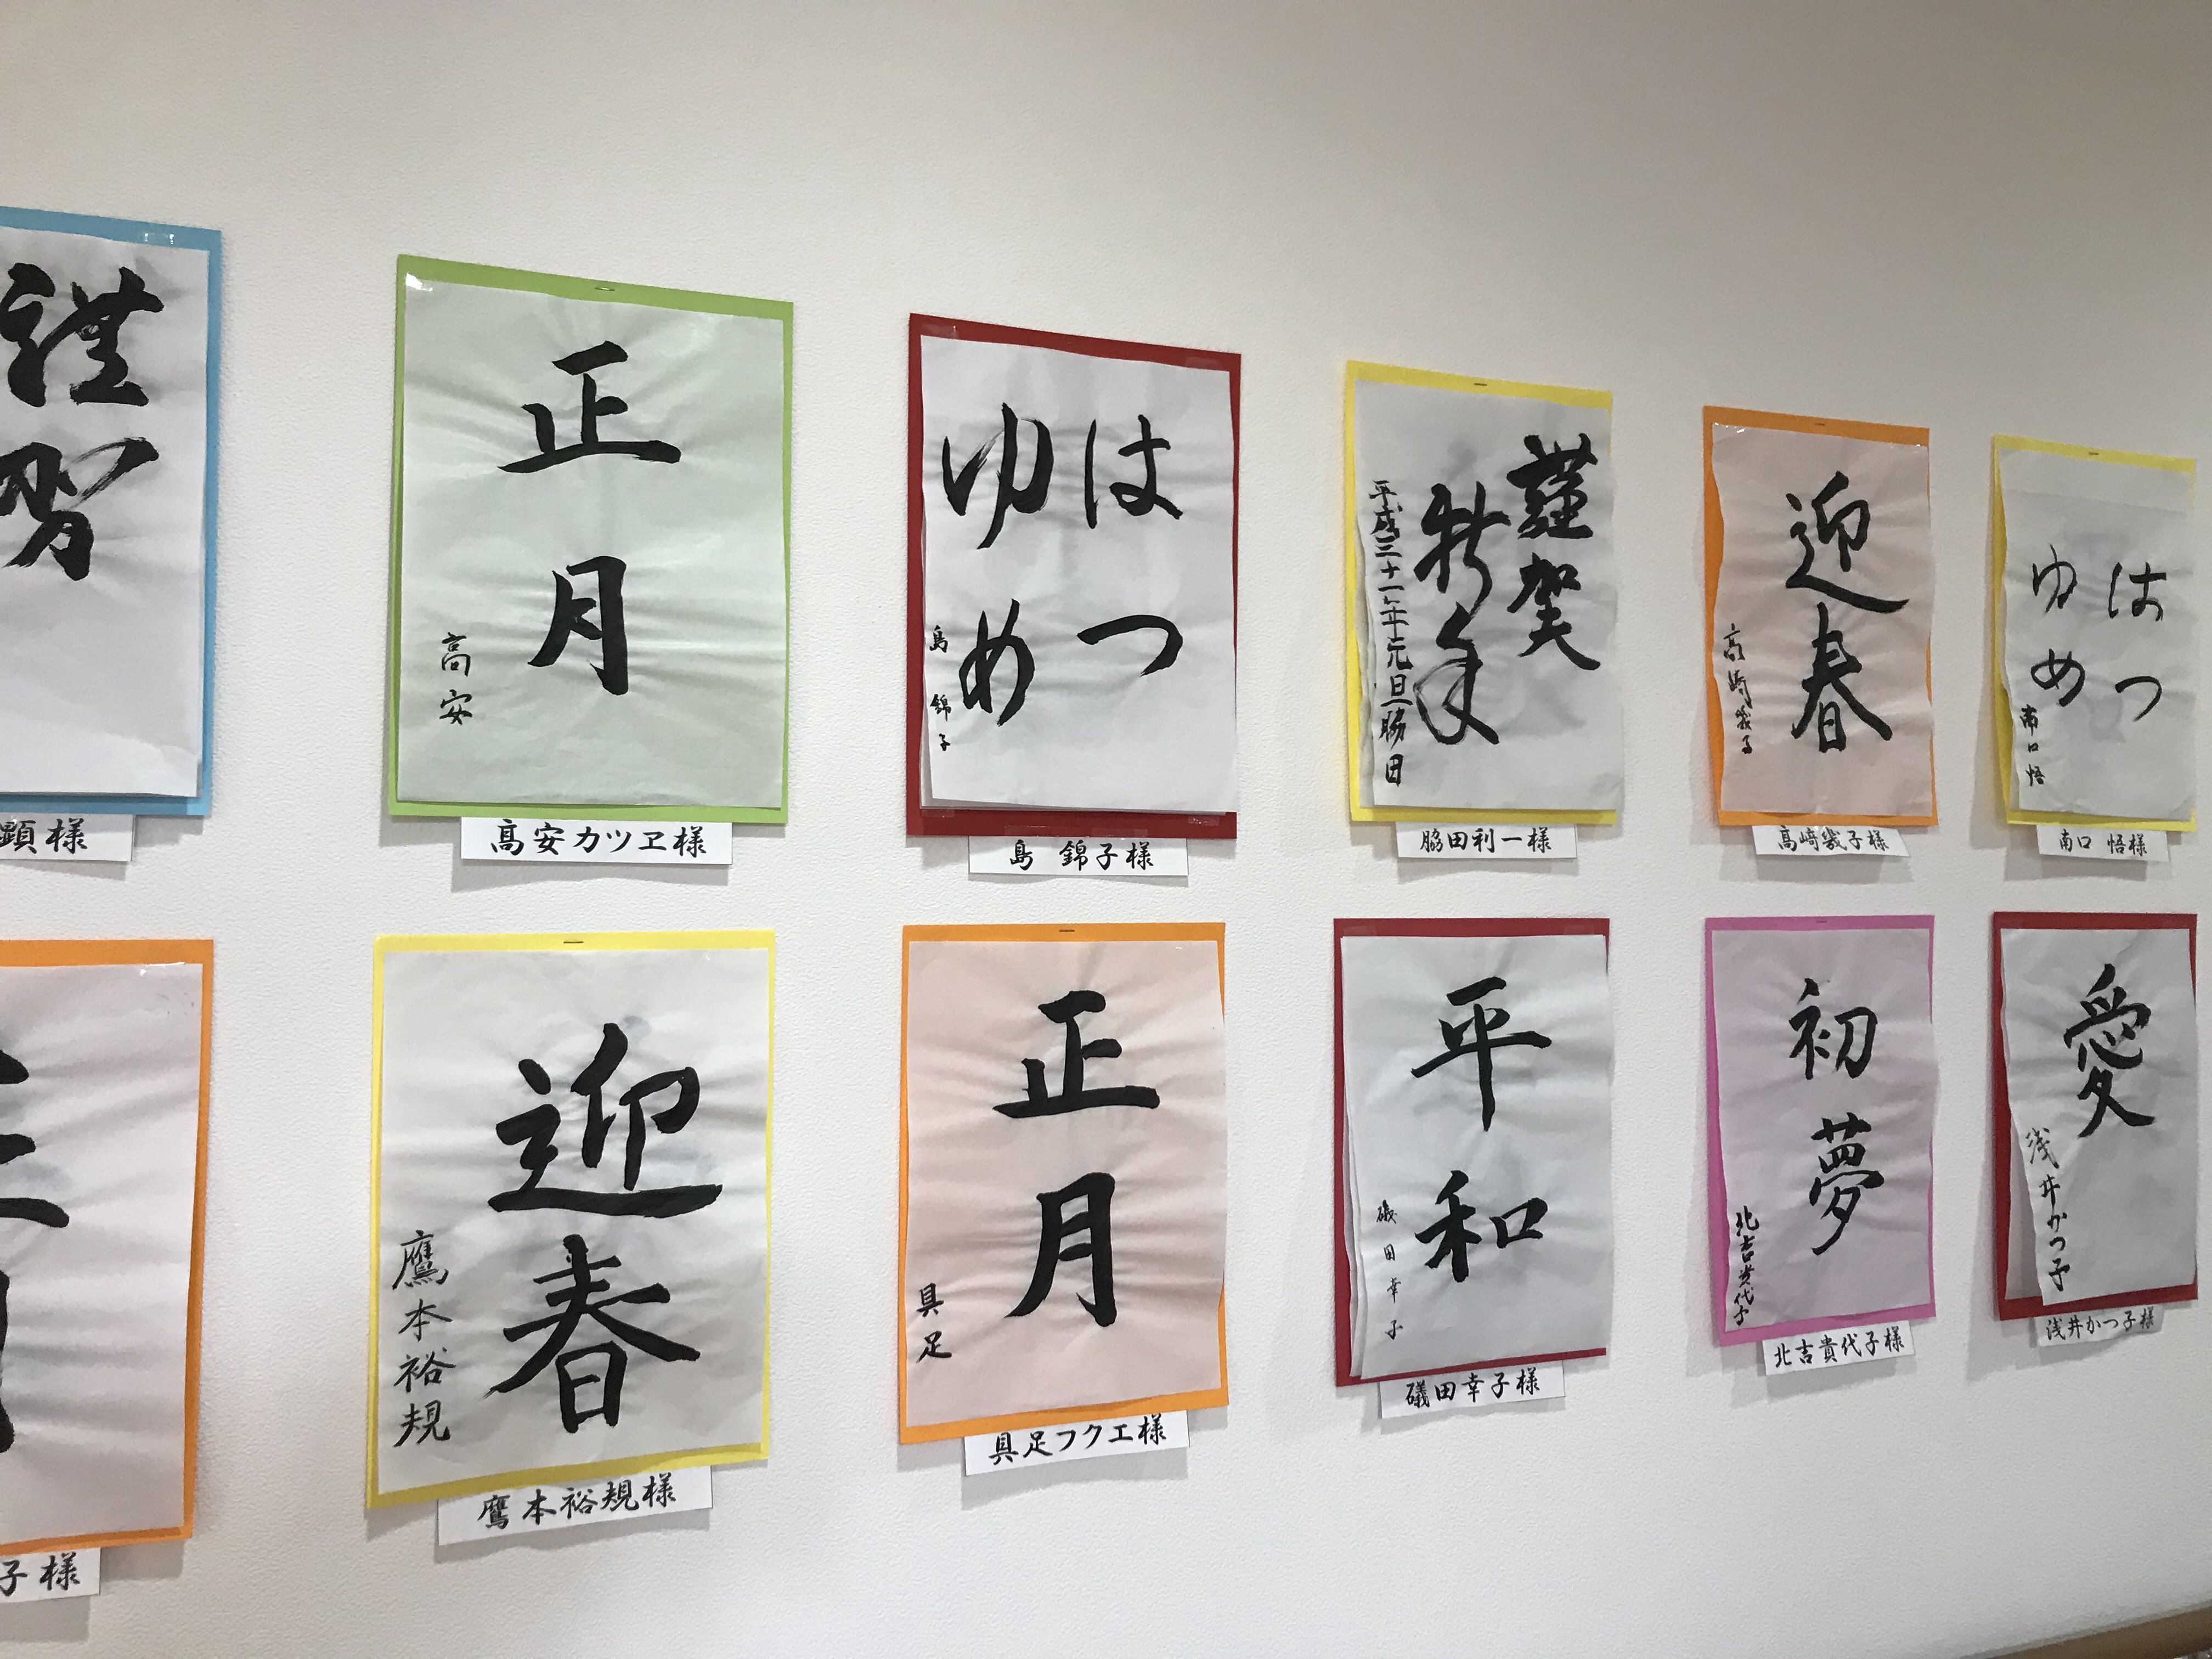 謹
賀
顕様
正月
高安
高安カツヱ様
はつ
ゆめ
島錦子
島 錦子様
謹賀
新年
平成三十一年元旦脇田
脇田利一様
迎春
高崎幾子
高崎幾子様
はつ
ゆめ
南口悟
南口 悟様
子様
迎春
鷹本裕規
鷹本裕規様
正月
具足
具足フクエ様
平和
礒田幸子
礒田幸子様
初夢
北吉貴代子
北吉貴代子様
愛
浅井かつ子
浅井かつ子様